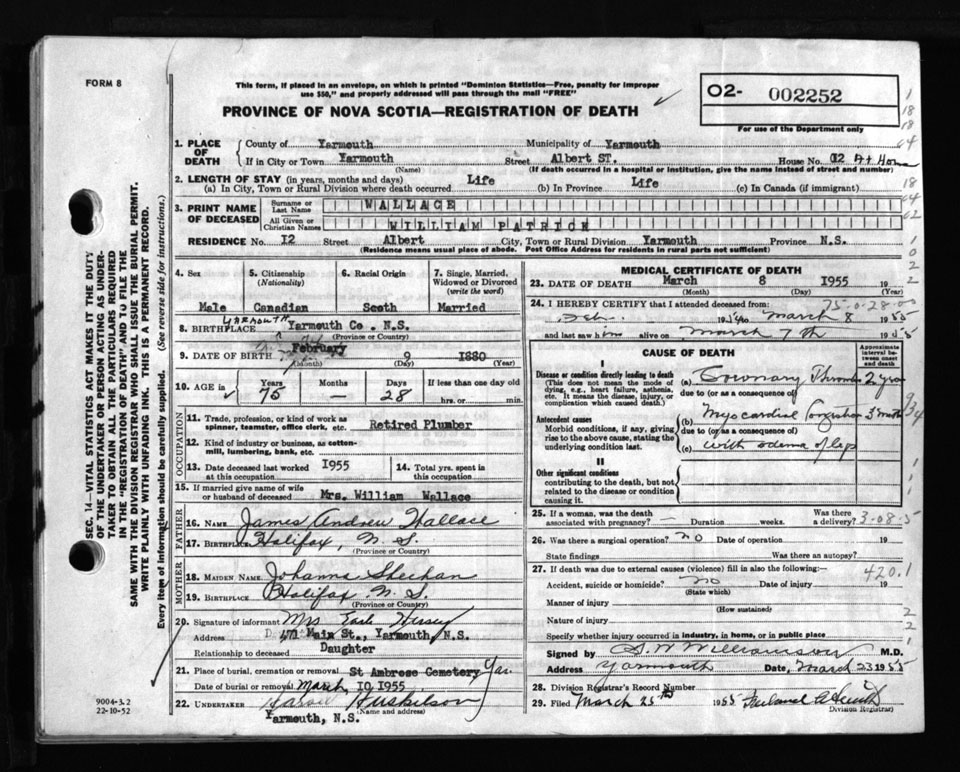 FORM 8
This form, if placed in an envelope, on which is printed "Dominion Statistics—Free, penalty for improper
use $50," and properly addressed will pass through the mail "FREE"
PROVINCE OF NOVA SCOTIA—REGISTRATION OF DEATH
O2- 002252
For use of the Department only
1. PLACE OF DEATH
County of Yarmouth Municipality of Yarmouth
If in City or Town Yarmouth Street Albert ST. House No. 12 At Home
(Name) (If death occurred in a hospital or institution, give the name instead of street and number)
2. LENGTH OF STAY (in years, months and days)
(a) In City, Town or Rural Division where death occurred Life (b) In Province Life (c) In Canada (if immigrant)
3. PRINT NAME OF DECEASED
Surname or Last Name WALLACE
All Given or Christian Names WILLIAM PATRICK
RESIDENCE No. I2 Street Albert City, Town or Rural Division Yarmouth Province N.S.
(Residence means usual place of abode. Post Office Address for residents in rural parts not sufficient)
4. Sex 5. Citizenship (Nationality) 6. Racial Origin 7. Single, Married, Widowed or Divorced (write the word)
Male Canadian Scoth Married
8. BIRTHPLACE YARMOUTH Yarmouth Co. N.S.
(Province or Country)
9. DATE OF BIRTH February 9 1880
(Month) (Day) (Year)
10. AGE in Years Months Days If less than one day old
75 — 28 hrs. or min.
OCCUPATION
11. Trade, profession, or kind of work as spinner, teamster, office clerk, etc. Retired Plumber
12. Kind of industry or business, as cotton-mill, lumbering, bank, etc.
13. Date deceased last worked at this occupation I955 14. Total yrs. spent in this occupation
15. If married give name of wife or husband of deceased Mrs. William Wallace
FATHER
16. NAME James Andrew Wallace
17. BIRTHPLACE Halifax, N.S.
(Province or Country)
MOTHER
18. MAIDEN NAME Johanna Sheehan
19. BIRTHPLACE Halifax N.S.
(Province or Country)
20. Signature of informant Mrs Earle
Address Main St., Yarmouth, N.S.
Relationship to deceased Daughter
21. Place of burial, cremation or removal St Ambrose Cemetery Yar
Date of burial or removal March 10 1955
22. UNDERTAKER Huskilson
(Name and address)
Yarmouth, N.S.
MEDICAL CERTIFICATE OF DEATH
23. DATE OF DEATH March 8 1955
(Month) (Day) (Year)
24. I HEREBY CERTIFY that I attended deceased from 75-0-28-00
Feb. to March 8 1955
and last saw him alive on March 7th 1955
CAUSE OF DEATH
Approximate interval between onset and death
I
Disease or condition directly leading to death
(This does not mean the mode of dying, e.g., heart failure, asthenia, etc. It means the disease, injury, or complication which caused death.)
(a) Coronary 2 yrs
due to (or as a consequence of)
Antecedent causes
Morbid conditions, if any, giving rise to the above cause, stating the underlying condition last.
(b) Myocardial 3
due to (or as a consequence of)
(c) with edema of legs
II
Other significant conditions
contributing to the death, but not related to the disease or condition causing it.
25. If a woman, was the death associated with pregnancy? — Duration weeks. Was there a delivery? 3-08-5
26. Was there a surgical operation? no Date of operation 19
State findings Was there an autopsy?
27. If death was due to external causes (violence) fill in also the following: 420.1
Accident, suicide or homicide? no Date of injury 19
(State which)
Manner of injury
(How sustained)
Nature of injury
Specify whether injury occurred in industry, in home, or in public place
Signed by S.W Williamson M.D.
Address Yarmouth Date, March 23 1955
28. Division Registrar's Record Number
29. Filed March 25 1955
Division Registrar)
SEC. 14—VITAL STATISTICS ACT MAKES IT THE DUTY
OF THE UNDERTAKER OR PERSON ACTING AS UNDER-
TAKER TO OBTAIN ALL THE PARTICULARS REQUIRED
IN THE "REGISTRATION OF DEATH" AND TO FILE THE
SAME WITH THE DIVISION REGISTRAR WHO SHALL ISSUE THE BURIAL PERMIT.
WRITE PLAINLY WITH UNFADING INK. THIS IS A PERMANENT RECORD.
Every item of information should be carefully supplied. (See reverse side for instructions.)
9004-3.2
22-10-52